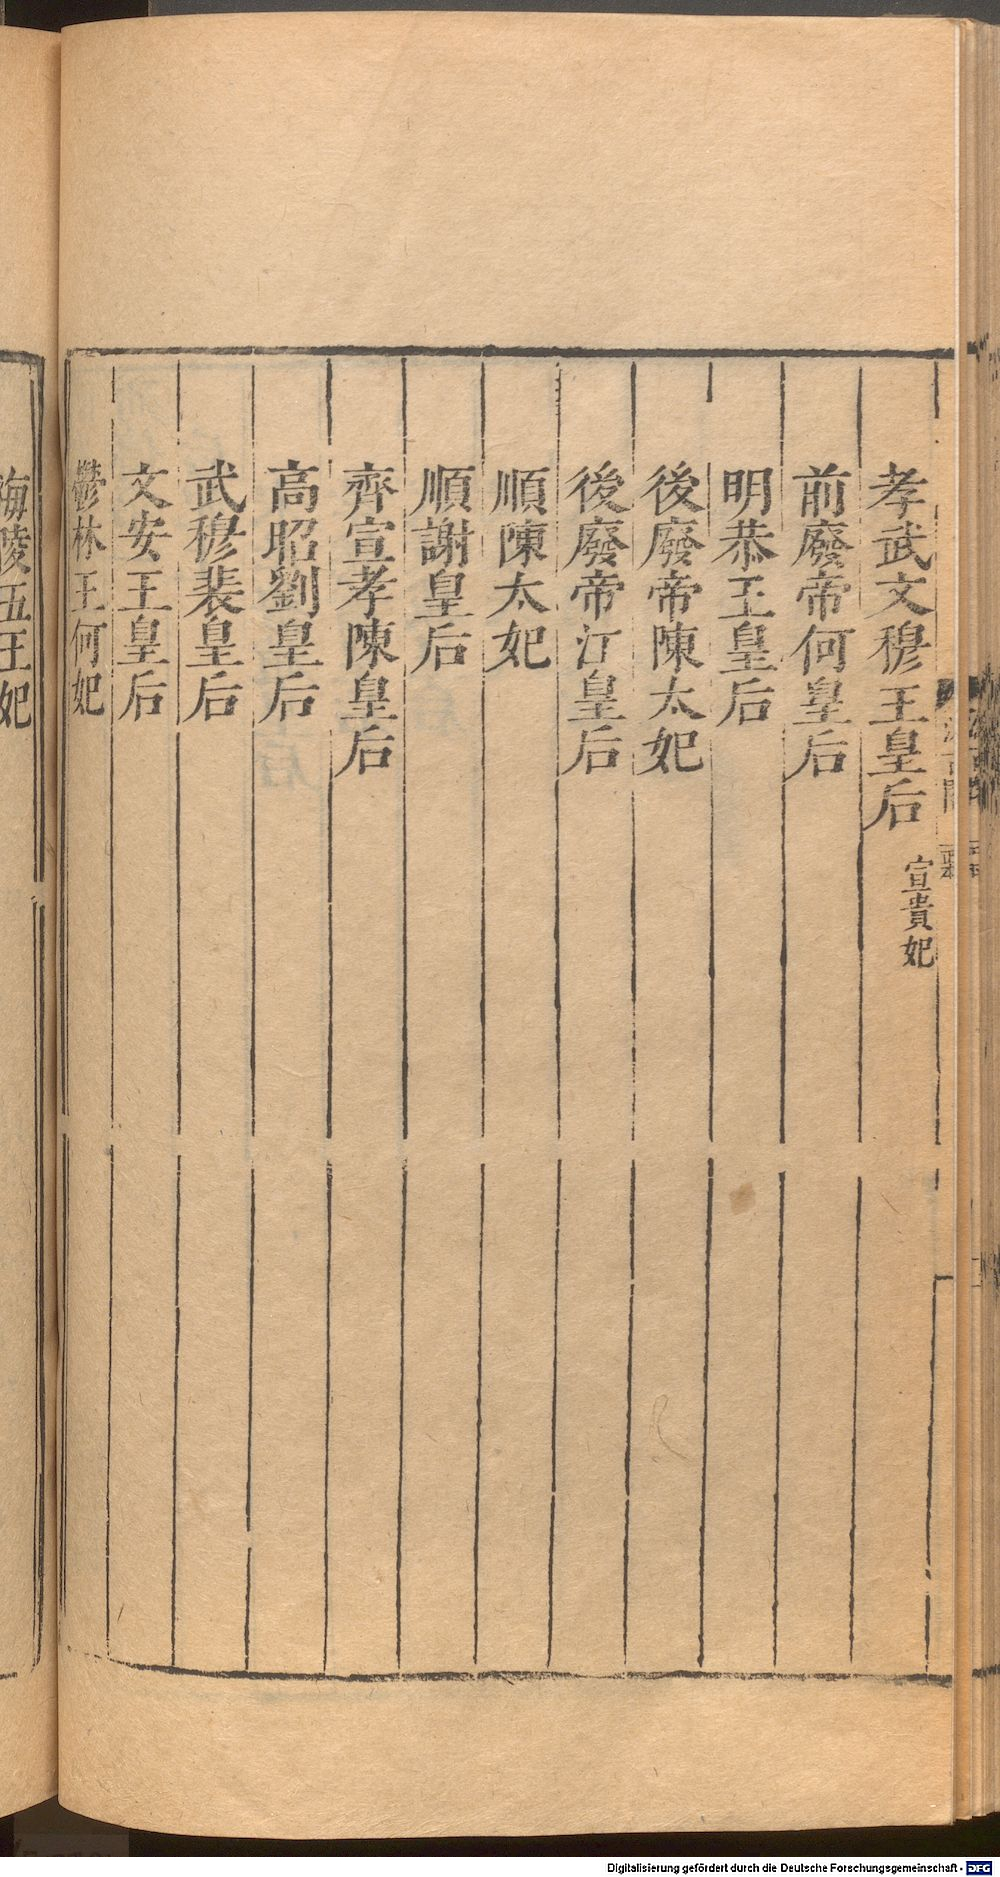 孝武文穆王皇后 宣貴妃
前廢帝何皇后
明恭王皇后
後廢帝陳太妃
後廢帝江皇后
順陳太妃
順謝皇后
齊宣孝陳皇后
高昭劉皇后
武穆裴皇后
文安王皇后
鬱林王何妃
海陵五王妃
Digitalisierung gefördert durch die Deutsche Forschungsgemeinschaft - DFG